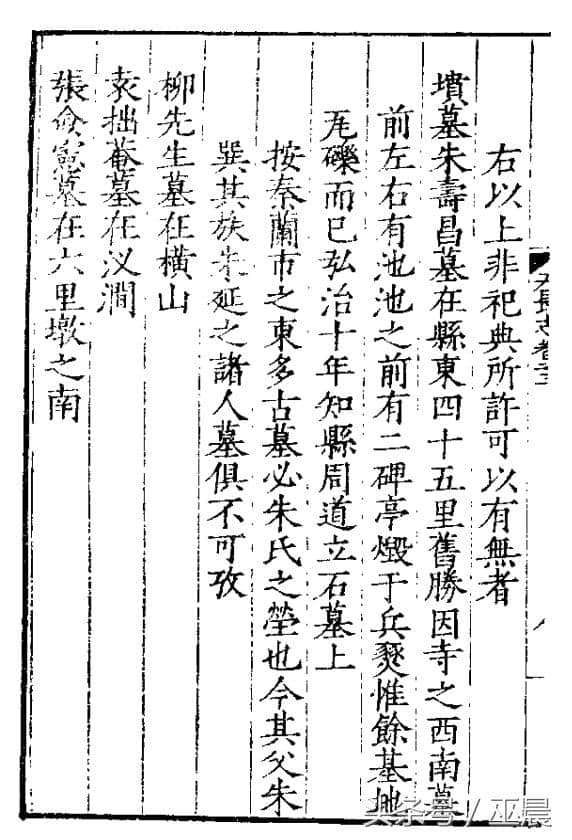 右以上非祀典所許可以有無者
墳墓朱壽昌墓在縣東四十五里舊勝因寺之西南墓
前左右有池池之前有二碑亭燬于兵燹惟餘墓地
瓦礫而已弘治十年知縣周道立石墓上
按秦蘭市之東多古墓必朱氏之塋也今其父朱
巽其族朱延之諸人墓俱不可攷
柳先生墓在橫山
袁拙菴墓在汊澗
張僉憲墓在六里墩之南
天長志卷三
八
头条号/巫晨